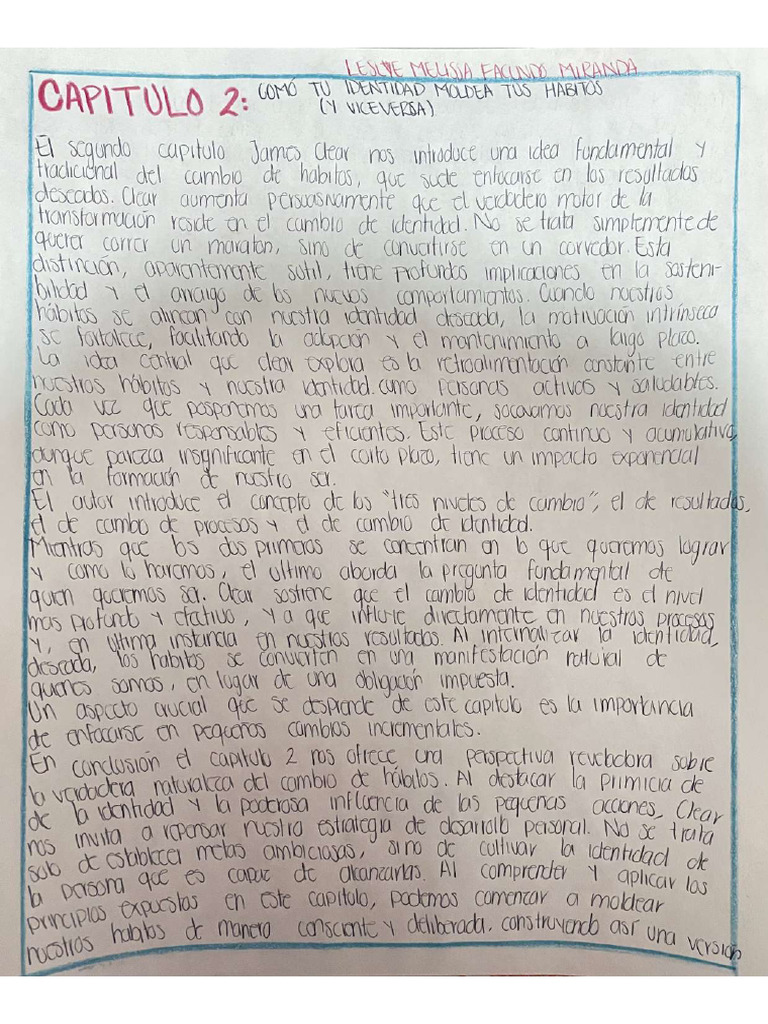 LESLYE MELISSA FACUNDO MIRANDA
CAPITULO 2: COMÓ TU IDENTIDAD MOLDEA TUS HABITOS
(Y VICEVERSA)
El segundo capitulo James Clear nos introduce una idea fundamental y
tradicional del cambio de habitos, que suele enfocarse en los resultados
deseados. Clear aumenta persuasivamente que el verdadero motor de la
transformación reside en el cambio de identidad. No se trata simplemente de
querer correr un maraton, sino de convertirse en un corredor. Esta
distinción, aparentemente sutil, tiene profundos implicaciones en la sosteni-
bilidad y el arraigo de los nuevos comportamientos. Cuando nuestros
hábitos se alinean con nuestra identidad deseada, la motivación intrínseca
se fortalece, facilitando la adopción y el mantenimiento a largo plazo.
La idea central que clear explora es la retroalimentación constante entre
nuestros hábitos y nuestra identidad. como personas activas y saludables.
Cada vez que posponemos una tarea importante, socavamos nuestra identidad
como personas responsables y eficientes. Este proceso continuo y acumulativo,
aunque parezca insignificante en el corto plazo, tiene un impacto exponencial
en la formación de nuestro ser.
El autor introduce el concepto de los "tres niveles de cambio", el de resultados,
el de cambio de procesos y el de cambio de identidad.
Mientras que los dos primeros se concentran en lo que queremos lograr
y como lo haremos, el ultimo aborda la pregunta fundamental de
quien queremos ser. Clear sostiene que el cambio de identidad es el nivel
mas profundo y efectivo, ya que influye directamente en nuestros procesos
y, en ultima instancia en nuestros resultados. Al internalizar la identidad,
deseada, los habitos se convierten en una manifestación natural de
quienes somos, en lugar de una obligación impuesta.
Un aspecto crucial que se desprende de este capitulo es la importancia
de enfocarse en pequeños cambios incrementales.
En conclusión el capitulo 2 nos ofrece una perspectiva reveladora sobre
la verdadera naturaleza del cambio de hábitos. Al destacar la primicia de
de la identidad y la poderosa influencia de las pequeñas acciones, Clear
nos invita a repensar nuestro estrategia de desarrollo personal. No se trata
solo de establecer metas ambiciosas, sino de cultivar la identidad de
la persona que es capaz de alcanzarlas. Al comprender y aplicar los
principios expuestos en este capitulo, podemos comenzar a moldear
nuestros habitos de manera consciente y deliberada, construyendo así una versión